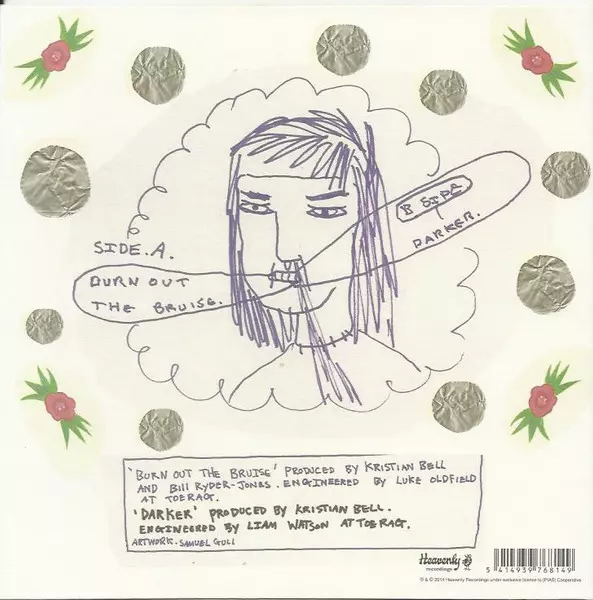 B SIDE
DARKER.
SIDE.A.
BURN OUT
THE BRUISE.
'BURN OUT THE BRUISE' PRODUCED BY KRISTIAN BELL
AND BILL RYDER-JONES. ENGINEERED BY LUKE OLDFIELD
AT TOERAG.
'DARKER' PRODUCED BY KRISTIAN BELL.
ENGINEERED BY LIAM WATSON AT TOERAG.
ARTWORK. SAMUEL GULL
Heavenly
recordings
5 414939 768149
℗ & © 2014 Heavenly Recordings under exclusive licence to [PIAS] Cooperative